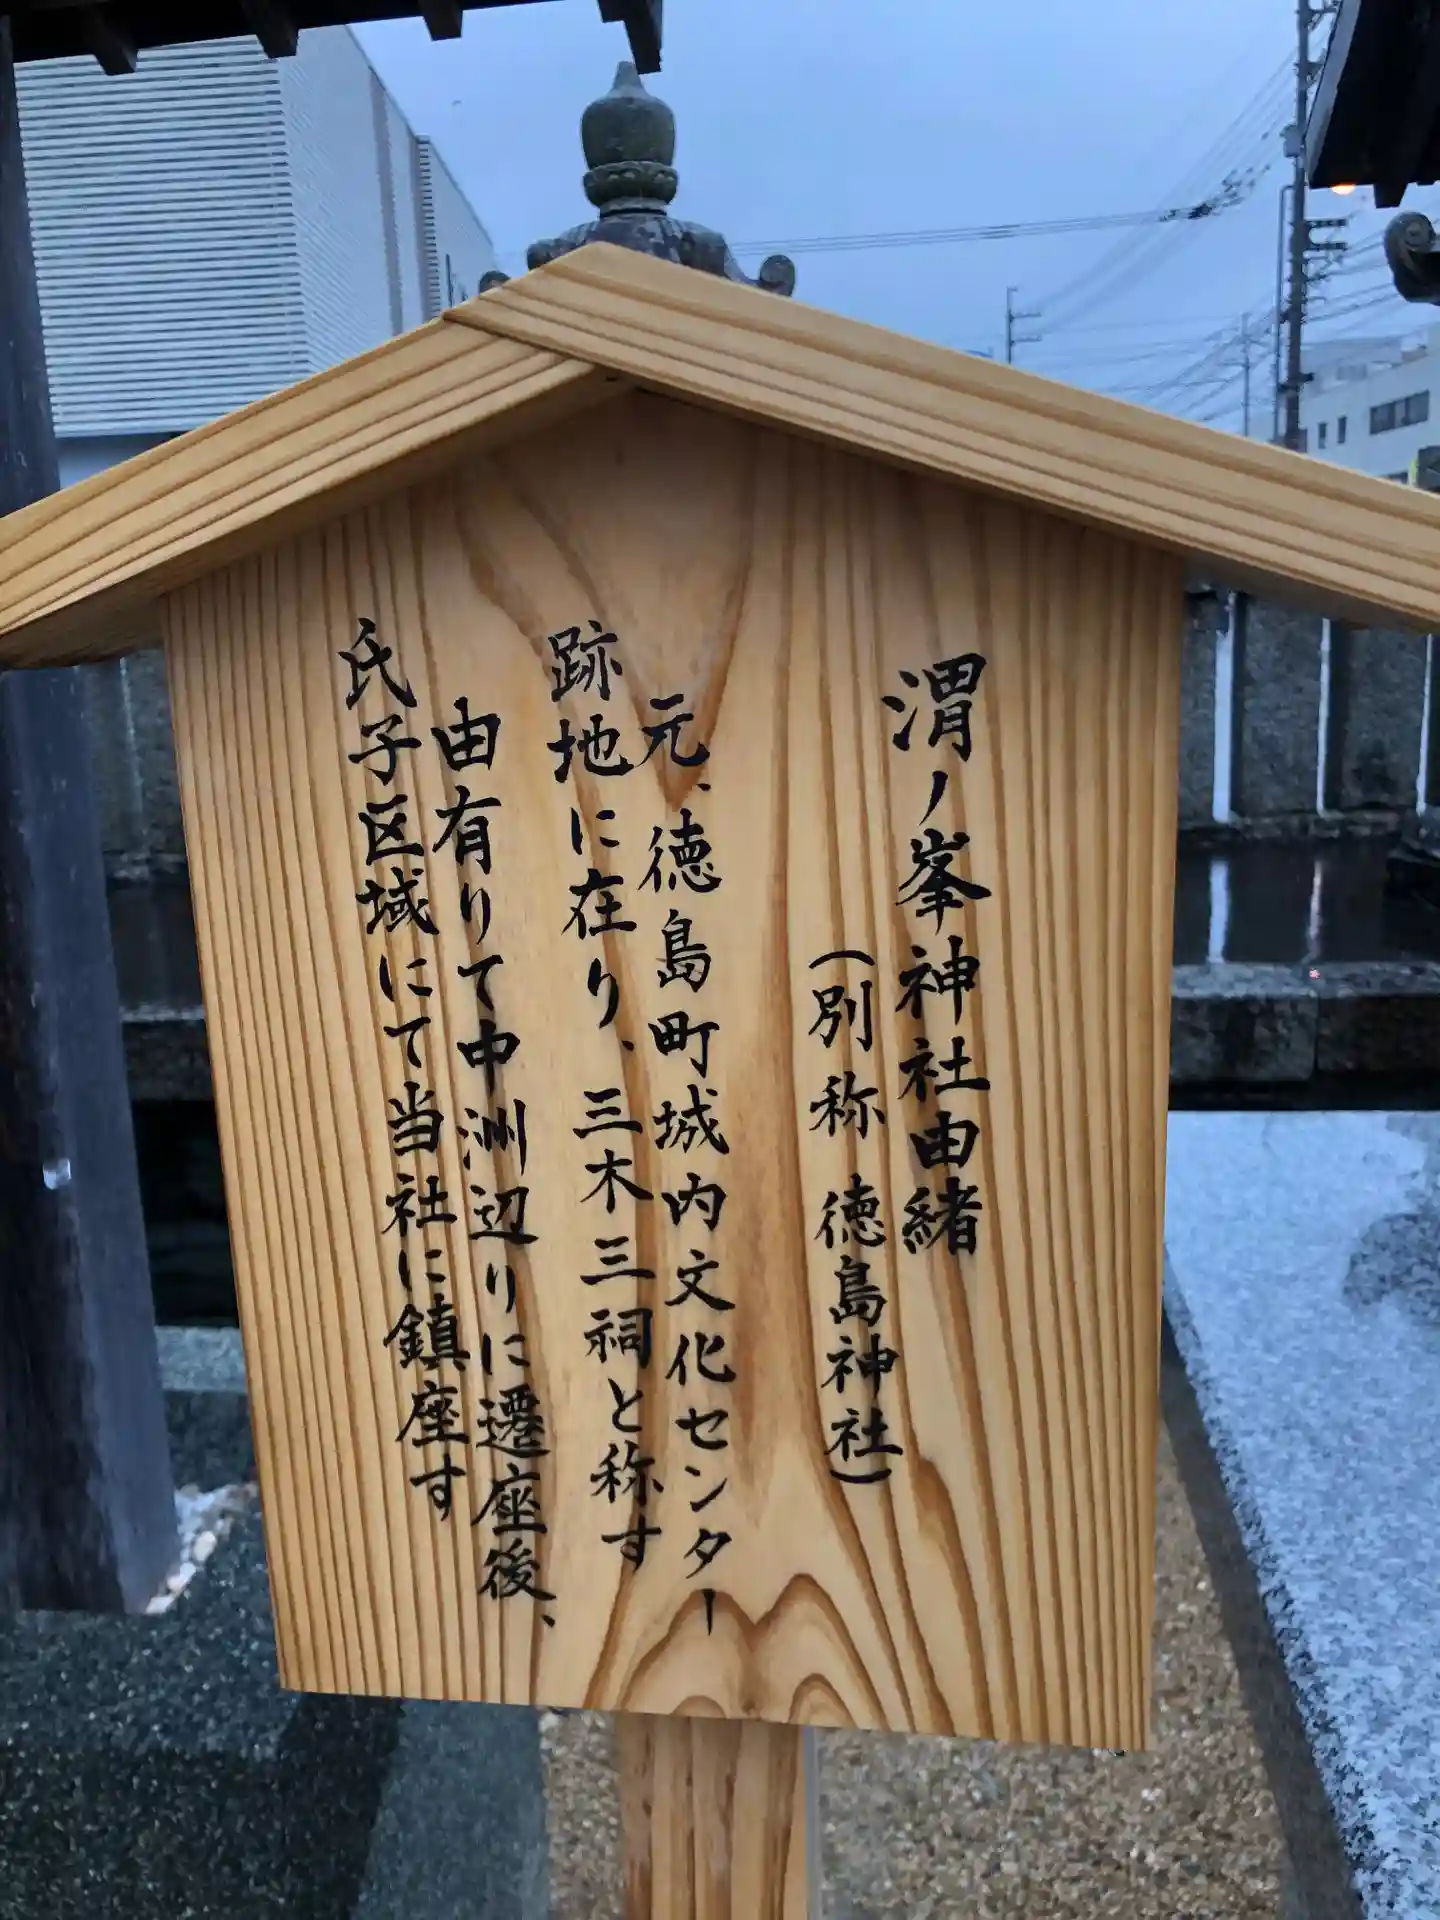 渭ノ峯神社由緒
(別称 徳島神社)
元、徳島町城内文化センター
跡地に在り、三木三祠と称す
由有りて中洲辺りに遷座後、
氏子区域にて当社に鎮座す